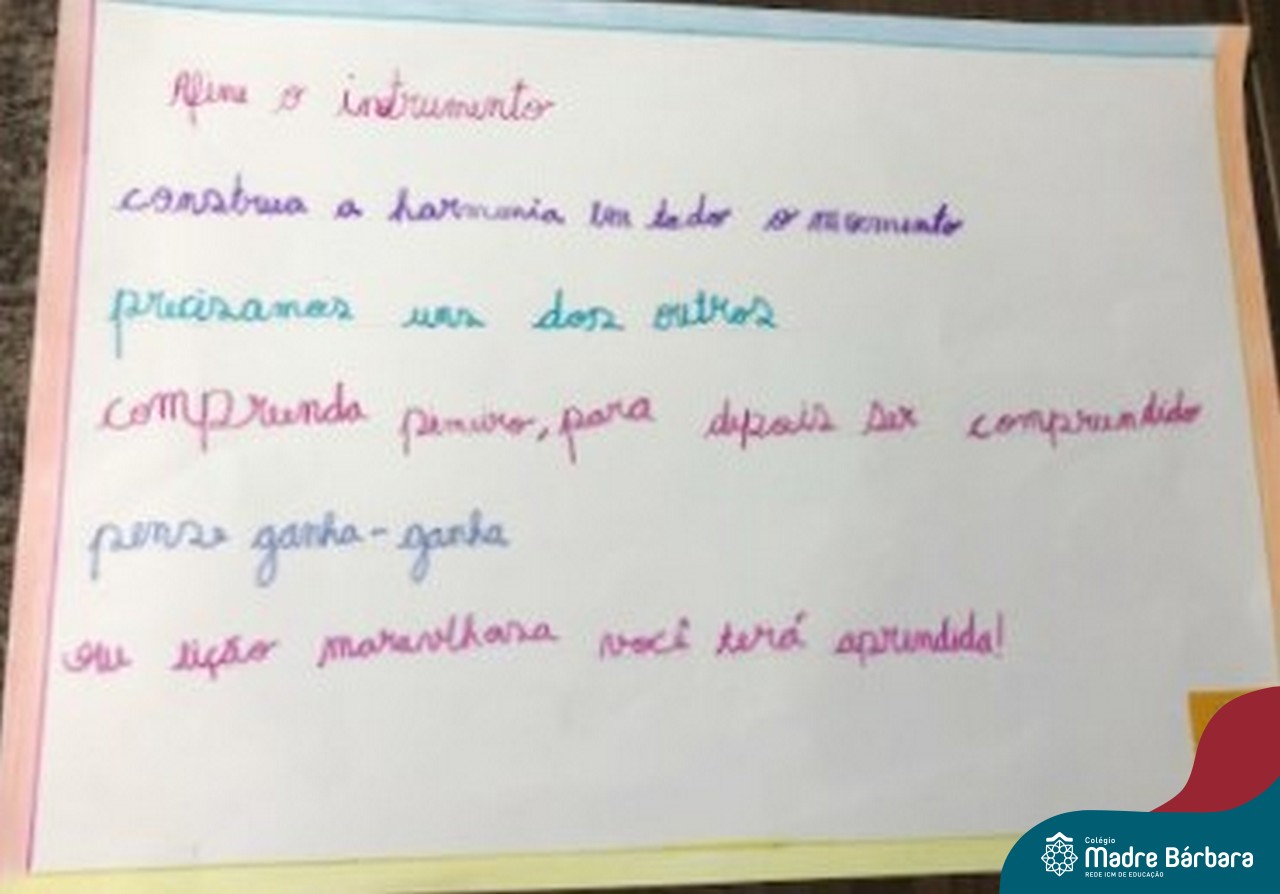 Afine o instrumento
construa a harmonia em todo o momento
precisamos uns dos outros
comprenda pimiro, para depois ser comprendido
pense ganha-ganha
Que lição maravilhosa você terá aprendida!
Colégio
Madre Bárbara
REDE ICM DE EDUCAÇÃO